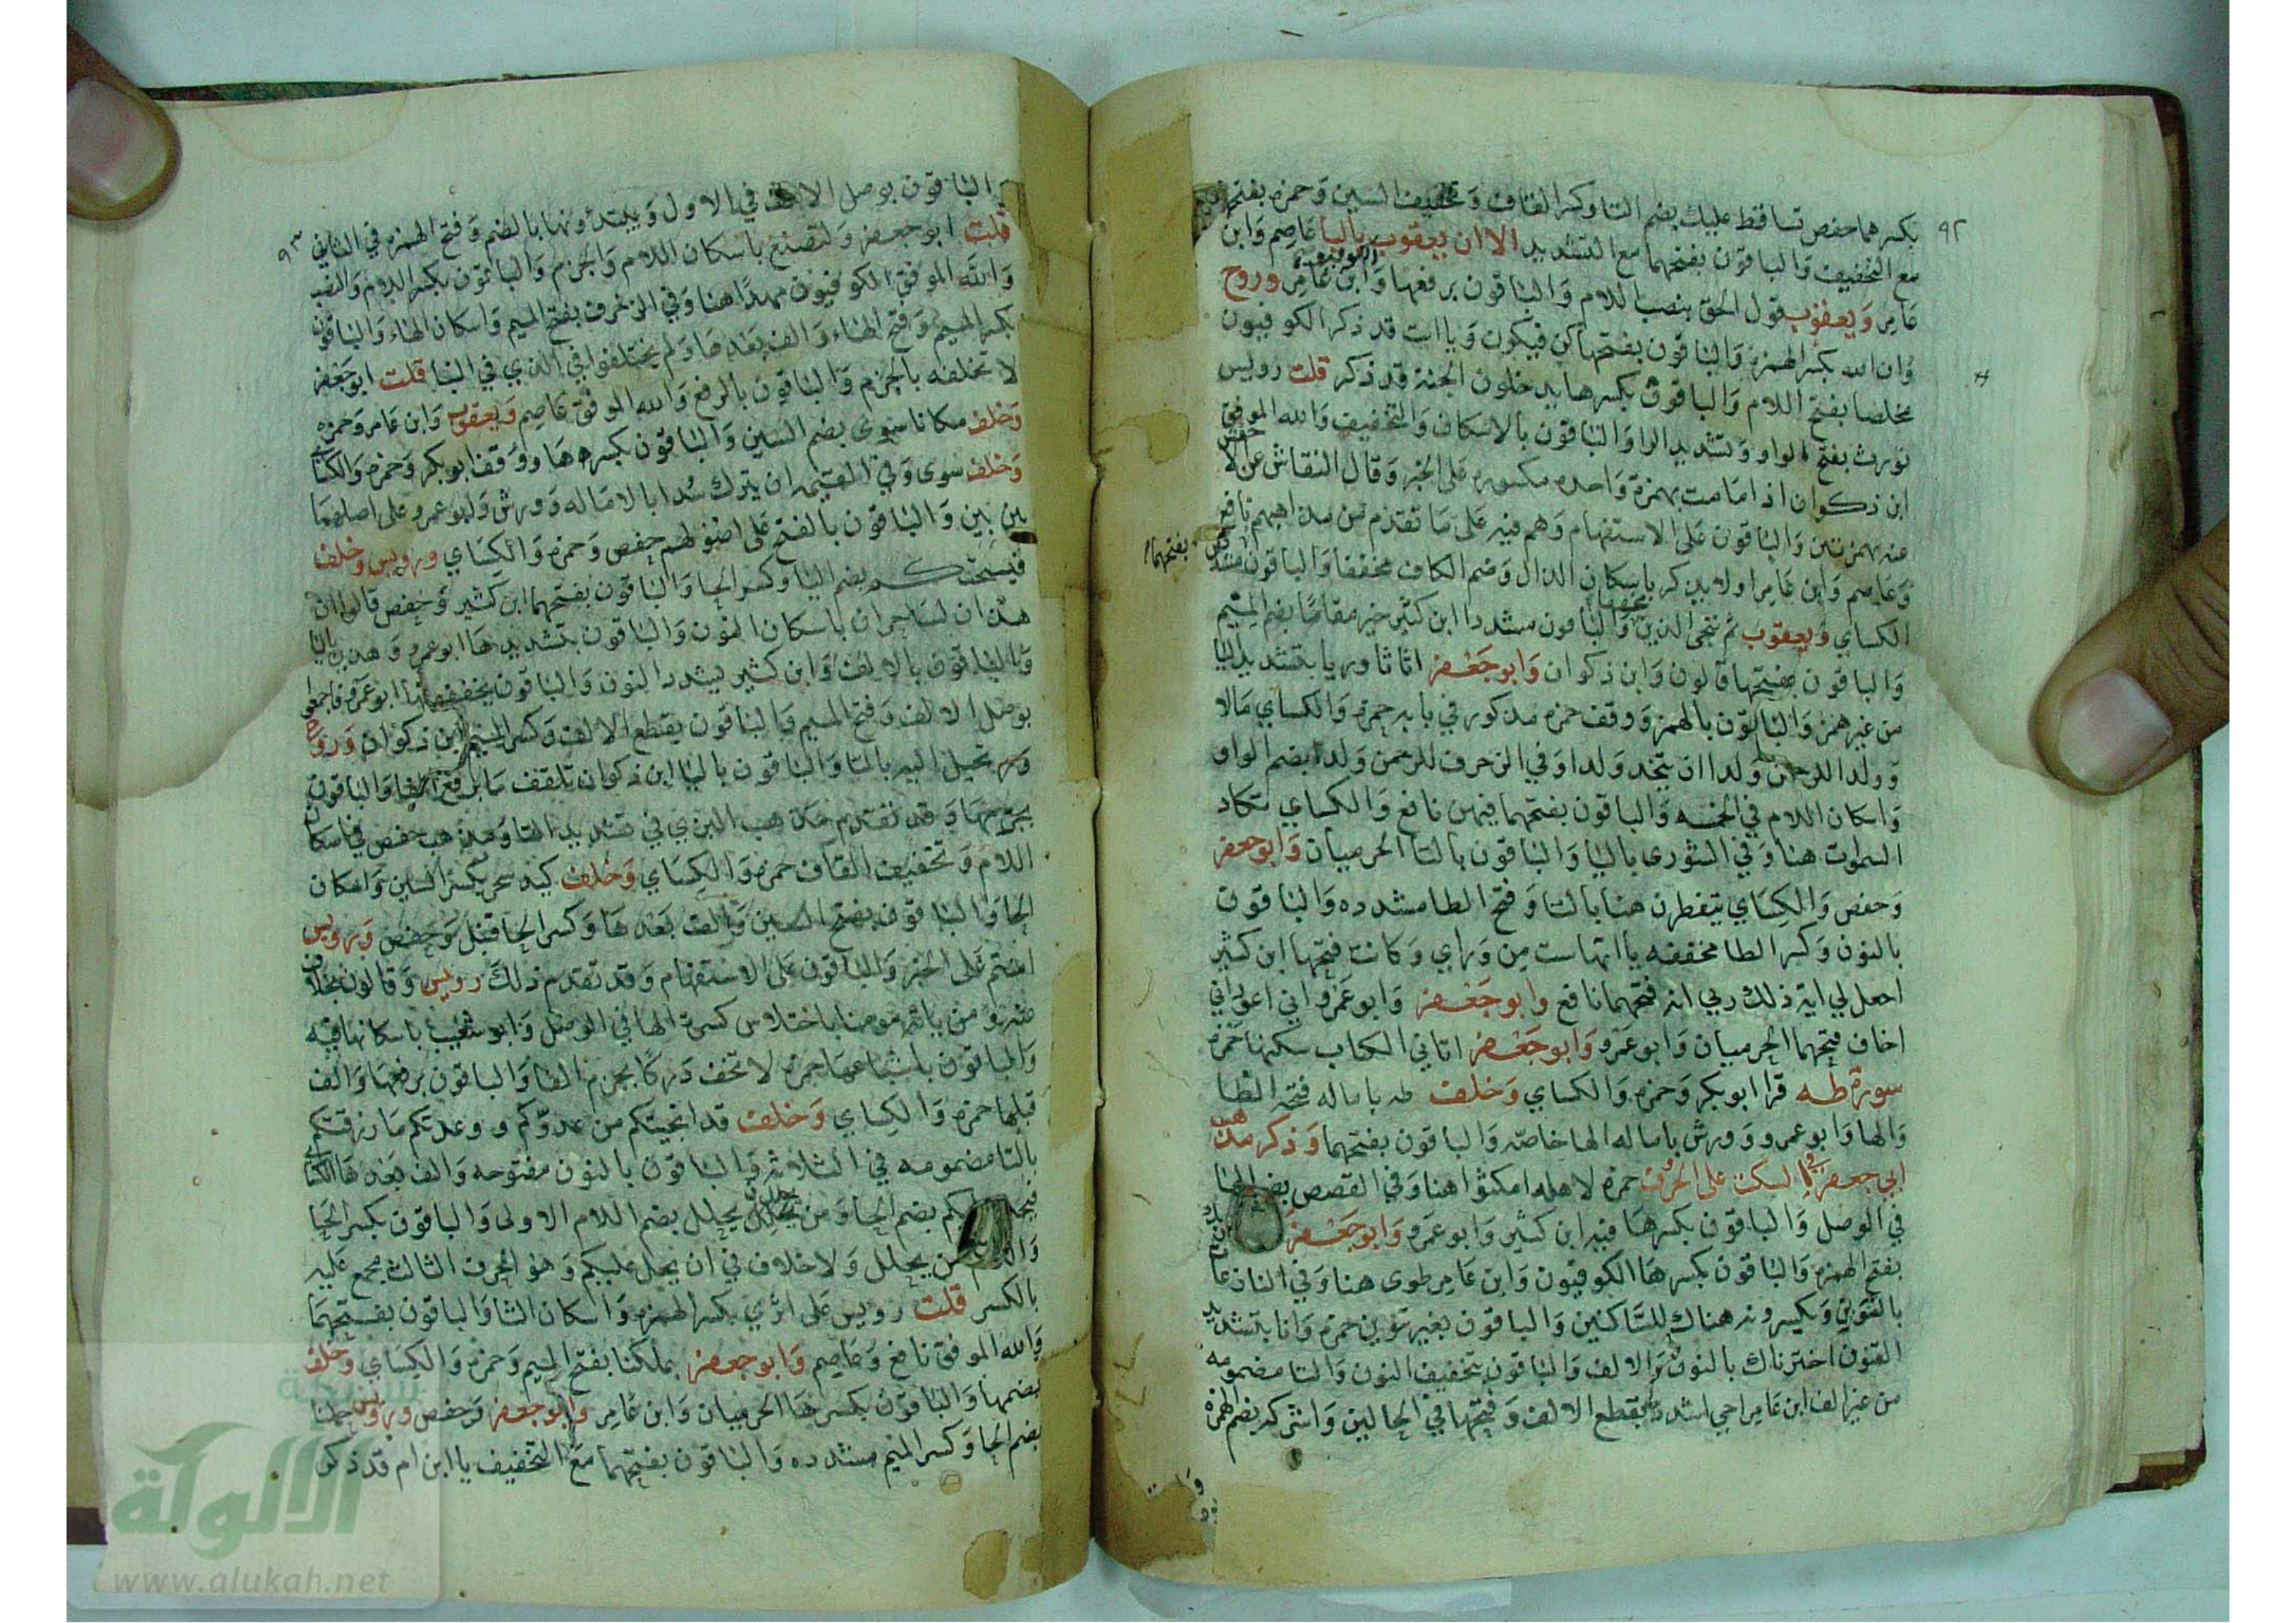 ٩٢
بكسرهما حفص تساقط عليك بضم التا وكسر القاف وتخفيف السين وحمزه بفتحهما
مع التخفيف والباقون بفتحهما مع التشديد الا ان يعقوب باليا عاصم وابن
عامر ويعقوب قول الحق بنصب اللام والباقون برفعها الكوفيون وابن عامر وروح
وان الله بكسر الهمزة والباقون بفتحها كن فيكون ويا ابت قد ذكر الكوفيون
مخلصا بفتح اللام والباقون بكسرها يدخلون الجنة قد ذكر قلت رويس
نورث بفتح الواو وتشديد الرا والباقون بالاسكان والتخفيف والله الموفق
ابن ذكوان اذا ما مت بهمزة واحده مكسوره على الخبر وقال النقاش عن الاخفش
عنه بهمزتين والباقون على الاستفهام وهم فيه على ما تقدم من مذاهبهم نافع
وعاصم وابن عامر اولا يذكر باسكان الذال وضم الكاف مخففا والباقون بفتحهما مشددا
الكساي ويعقوب ثم ننجي الذين مخففا والباقون مشددا ابن كثير خير مقاما بضم الميم
والباقون بفتحها قالون وابن ذكوان وابو جعفر اثاثا وريا بتشديد اليا
من غير همز والباقون بالهمز ووقف حمزه مذكور في بابه حمزه والكساي مالا
وولدا للرحمن ولدا ان يتخذ ولدا وفي الزخرف للرحمن ولدا بضم الواو
واسكان اللام في الخمسه والباقون بفتحهما فيهن نافع والكساي تكاد
السموات هنا وفي الشورى باليا والباقون بالتا الحرميان وابو جعفر
وحفص والكساي يتفطرن هنا بالتا وفتح الطا مشدده والباقون
بالنون وكسر الطا مخففه يا اتها ست من وراي وكانت فتحها ابن كثير
اجعل لي اية ذلك ربي انه فتحهما نافع وابو جعفر وابو عمرو اني اعوذ اني
اخاف فتحهما الحرميان وابو عمرو وابو جعفر اتاني الكتاب سكنها حمزه
سورة طه قرا ابو بكر وحمزه والكساي وخلف طه باماله فتحه الطا
والها وابو عمرو وورش باماله الها خاصه والباقون بفتحهما وذكر مذهب
ابي جعفر في السكت على الحروف حمزه لاهله امكثوا هنا وفي القصص بضم الها
في الوصل والباقون بكسرها فيه ابن كثير وابو عمرو وابو جعفر
بفتح الهمزه والباقون بكسرها الكوفيون وابن عامر طوى هنا وفي النازعات
بالتنوين ويكسرونه هناك للساكنين والباقون بغير تنوين حمزه وانا بتشديد
النون اخترناك بالنون والالف والباقون بتخفيف النون والتا مضمومه
من غير الف ابن عامر اخي اشدد بقطع الالف وفتحها في الحالين واشركه بضم الهمزه
٩٣
والباقون بوصل الالف في الاول ويبتدءونها بالضم وفتح الهمزه في الثاني
قلت ابو جعفر ولتصنع باسكان اللام والجزم والباقون بكسر اللام والنصب
والله الموفق الكوفيون مهدا هنا وفي الزخرف بفتح الميم واسكان الهاء والباقون
بكسر الميم وفتح الهاء والف بعدها ولم يختلفوا في الذي في النبا قلت ابو جعفر
لا نخلفه بالجزم والباقون بالرفع والله الموفق عاصم ويعقوب وابن عامر وحمزه
وخلف مكانا سوى بضم السين والباقون بكسرها ووقف ابو بكر وحمزه والكساي
وخلف سوى وفي القيمه ان يترك سدا بالاماله وورش وابو عمرو على اصلهما
بين بين والباقون بالفتح على اصولهم حفص وحمزه والكساي ورويس وخلف
فيسحتكم بضم اليا وكسر الحا والباقون بفتحهما ابن كثير وحفص قالوا ان
هذان لساحران باسكان النون والباقون بتشديدها ابو عمرو وهذين باليا
والباقون بالالف وابن كثير يشدد النون والباقون يخففونها ابو عمرو فاجمعوا
بوصل الالف وفتح الميم والباقون بقطع الالف وكسر الميم ابن ذكوان وروح
تخيل اليه بالتا والباقون باليا ابن ذكوان تلقف ما برفع الفا والباقون
بجزمها وقد تقدم مذهب البزي في تشديد التا ومذهب حفص في اسكان
اللام وتخفيف القاف حمزه والكساي وخلف كيد سحر بكسر السين واسكان
الحا والباقون بفتح السين والف بعدها وكسر الحا قنبل وحفص ورويس
امنتم على الخبر والباقون على الاستفهام وقد تقدم ذلك رويس وقالون بخلاف
عنه ومن ياته مومنا باختلاس كسرة الها في الوصل وابو شعيب باسكانها فيه
والباقون باشباعها حمزه لا تخف دركا بجزم الفا والباقون برفعها والف
قبلها حمزه والكساي وخلف قد انجيتكم من عدوكم ووعدتكم ما رزقتكم
بالتا مضمومه في الثلاثه والباقون بالنون مفتوحه والف بعدها الكساي
فيحل عليكم بضم الحا ومن يحلل بضم اللام الاولى والباقون بكسر الحا
واللام من يحلل ولا خلاف في ان يحل عليكم وهو الحرف الثالث مجمع عليه
بالكسر قلت رويس على اثري بكسر الهمزه واسكان الثا والباقون بفتحهما
والله الموفق نافع وعاصم وابو جعفر بملكنا بفتح الميم وحمزه والكساي وخلف
بضمها والباقون بكسرها الحرميان وابن عامر وابو جعفر وحفص ورويس حملنا
بضم الحا وكسر الميم مشدده والباقون بفتحهما مع التخفيف يا ابن ام قد ذكر
شبكة
الألوكة
www.alukah.net